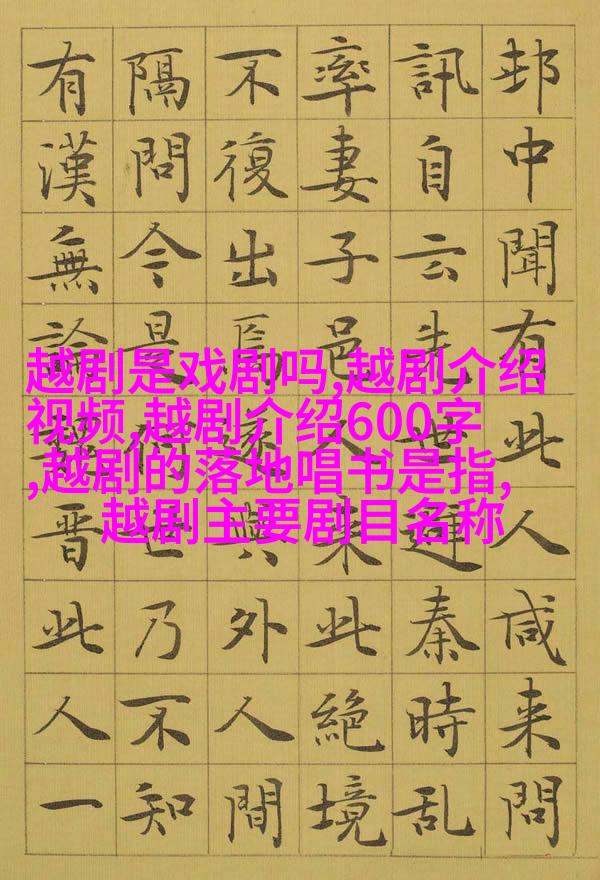 邨中聞有此人咸来問
訊自云先世避秦時乱
率妻子邑人来此絶境
不復出焉遂與外人間
隔問今是何世乃不知
有漢無論魏晋此人一
越剧是戏剧吗,越剧介绍
视频,越剧介绍600字
,越剧的落地唱书是指,
越剧主要剧目名称